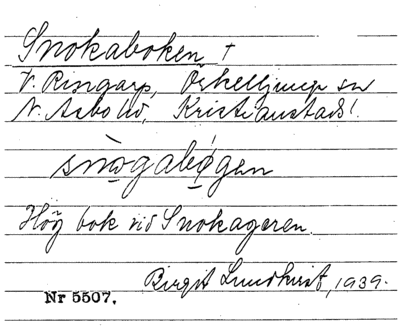 Snokaboken †
V. Ringarp, Örkelljunga sn
N. Åsbo hd, Kristianstads l.
snogabøgen
Hög bok vid Snokageren.
Birgit Lundkvist, 1939.
Nr 5507.